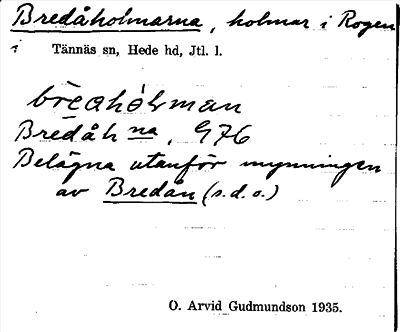 Bredåholmarna, holmar i Rogen
i Tännäs sn, Hede hd, Jtl. l.
Bredåh na, G76
Belägna utanför mynningen
av Bredån (s.d.o.)
O. Arvid Gudmundson 1935.